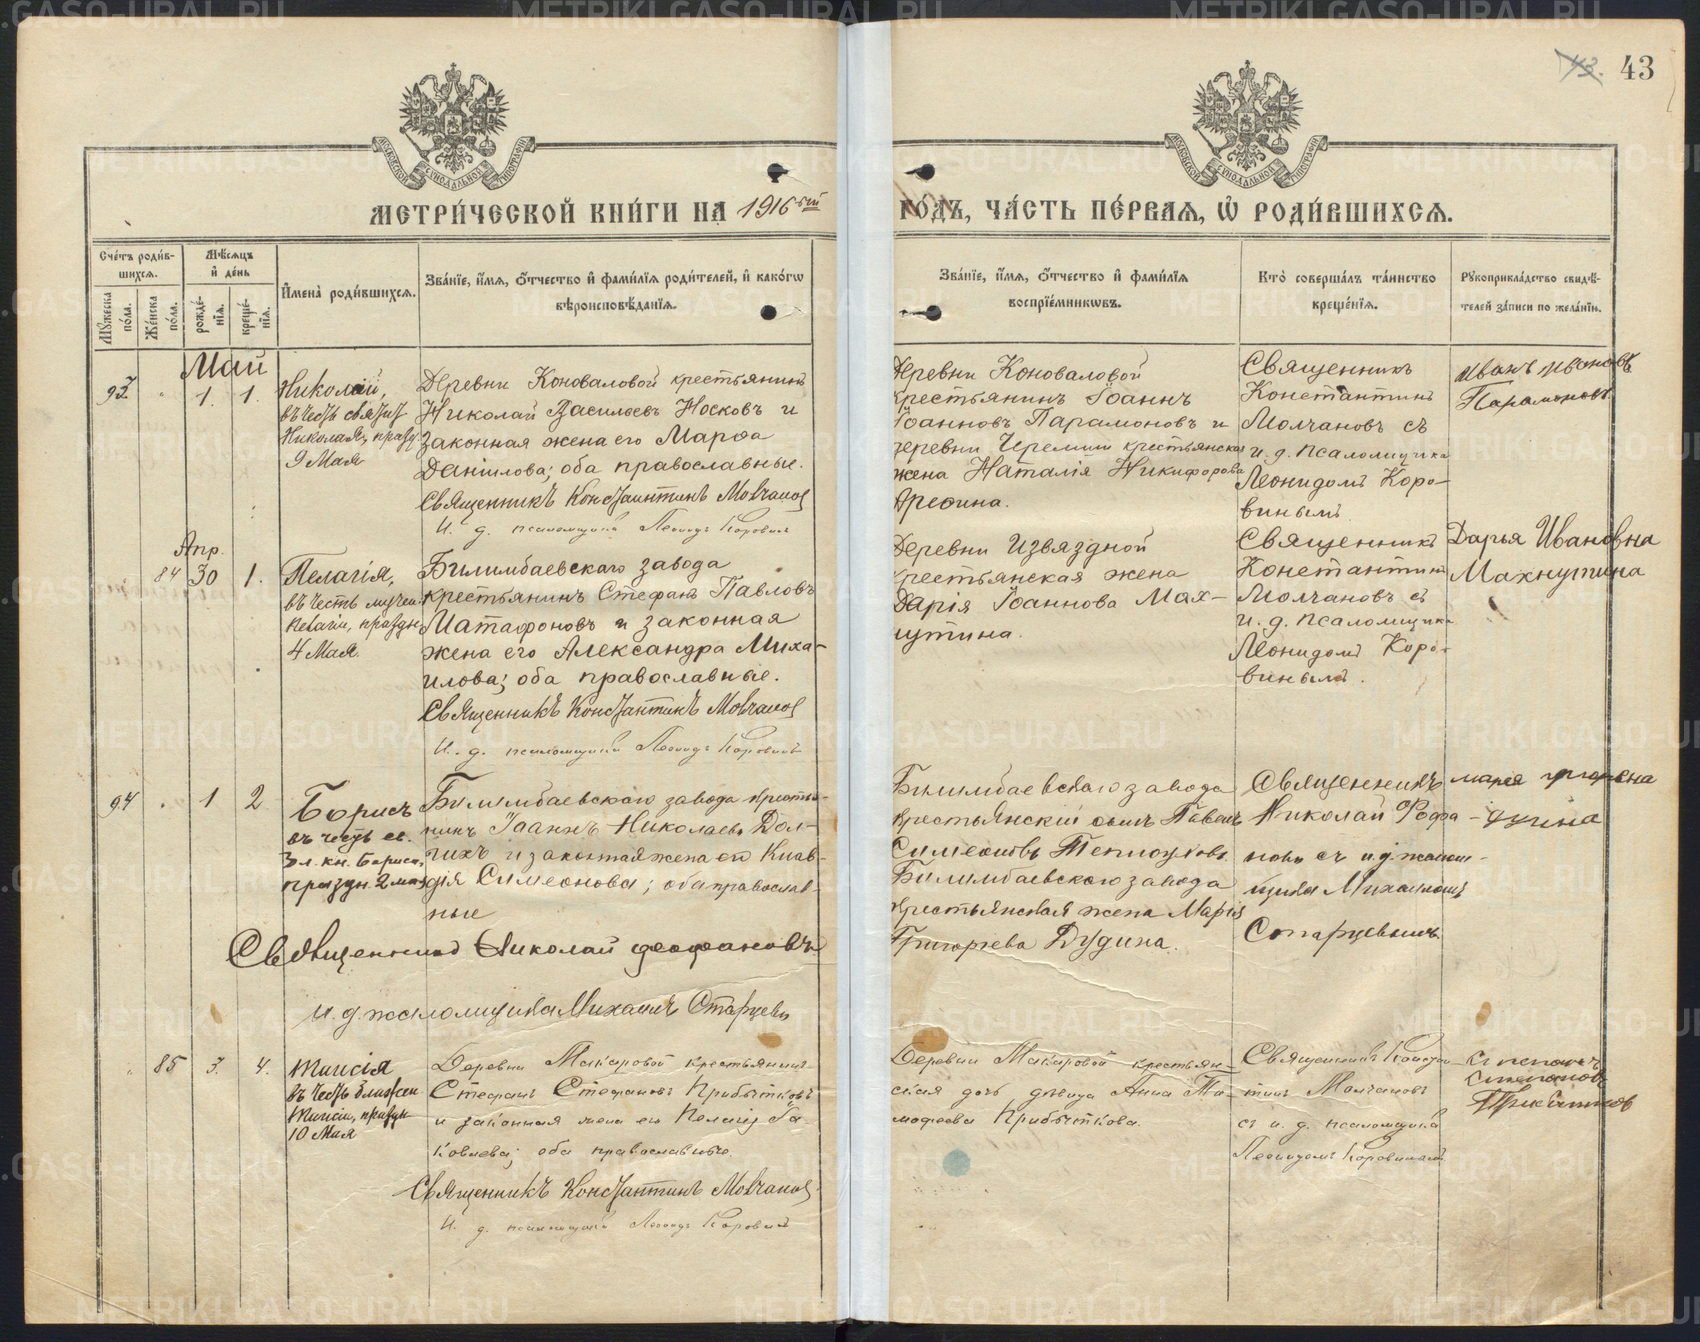 43. 43
МЕТРИ́ЧЕСКОЙ КНИ́ГИ НА 1916 ый ГО́ДЪ, ЧА́СТЬ ПЕ́РВАЯ, Ѡ РОДИ́ВШИХСЯ.
Сче́тъ роди́в-
шихся.
Мѣ́сяцъ
и҆ де́нь
Мꙋ́жеска по́ла.
Же́нска по́ла.
рожде́нїя.
креще́нїя.
И҆мена̀ роди́вшихся.
Зва́нїе, и҆́мя, ѻ҆́тчество и҆ фами́лїя роди́телей, и҆ како́гѡ
вѣроисповѣ́данїя.
Зва́нїе, и҆́мя, ѻ҆́тчество и҆ фами́лїя
воспрїе́мникѡвъ.
Кто̀ соверша́лъ та́инство
креще́нїя.
Рꙋкоприкла́дство свидѣ́-
телей за́писи по жела́нїю.
Май
93. 1. 1.
Николай,
въ честь святит
Николая, празд.
9 Мая
Деревни Коноваловой крестьянинъ
Николай Васильевъ Носковъ и
законная жена его Марѳа
Даніилова; оба православные.
Священникъ Константинъ Молчановъ
И. д. псаломщика Леонидъ Коровинъ
Деревни Коноваловой
крестьянинъ Іоаннъ
Іоанновъ Парамоновъ и
деревни Черемши крестьянская
жена Наталія Никифорова
Арефина.
Священникъ
Константинъ
Молчановъ съ
и. д. псаломщика
Леонидомъ Коро-
винымъ
иванъ ивановъ
Парамоновъ
Апр.
84 30 1.
Пелагія,
въ честь мучен.
Пелагіи, праздн.
4 Мая
Билимбаевскаго завода
крестьянинъ Стефанъ Павловъ
Матафоновъ и законная
жена его Александра Миха-
илова; оба православные.
Священникъ Константинъ Молчановъ
И. д. псаломщика Леонидъ Коровинъ
Деревни Извяздной
крестьянская жена
Дарія Іоаннова Мах-
нутина.
Священникъ
Константинъ
Молчановъ съ
и. д. псаломщика
Леонидомъ Коро-
винымъ.
Дарья Ивановна
Махнутина
94 1 2
Борисъ
въ честь св.
бл. кн. Бориса,
праздн. 2 мая
Билимбаевскаго завода крестья-
нинъ Іоаннъ Николаевъ Дол-
гихъ и законная жена его Клав-
дія Симеонова; оба православ-
ные
Священникъ Николай Феофановъ
И. д. псаломщика Михаилъ Старцевъ
Билимбаевскаго завода
крестьянскій сынъ Павелъ
Симеоновъ Теплоуховъ
Билимбаевскаго завода
крестьянская жена Марія
Григорьева Дудина.
Священникъ
Николай Феофа-
новъ съ и. д. псалом-
щика Михаиломъ
Старцевымъ
85 3. 4.
Таисія
въ честь блажен
Таисіи, праздн
10 Мая
Деревни Макаровой крестьянинъ
Стефанъ Стефановъ Прибытковъ
и законная жена его Пелагія Іа-
ковлева; оба православные.
Священникъ Константинъ Молчановъ
И. д. псаломщика Леонидъ Коровинъ
Деревни Макаровой крестьян-
ская дочь дѣвица Анна Ти-
мофеева Прибыткова.
Священникъ Констан-
тинъ Молчановъ
съ и. д. псаломщика
Леонидомъ Коровинымъ
степанъ
степановъ
METRIKI.GASO-URAL.RU